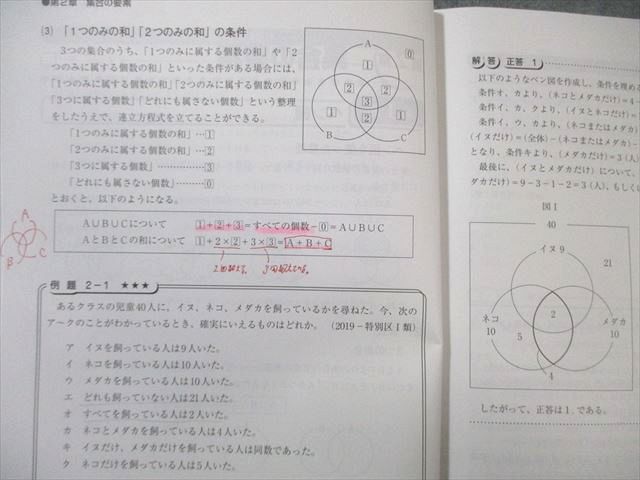 ●第2章 集合の要素
(3) 「1つのみの和」「2つのみの和」の条件
3つの集合のうち、「1つのみに属する個数の和」や「2
つのみに属する個数の和」といった条件がある場合には、
「1つのみに属する個数の和」「2つのみに属する個数の和」
「3つに属する個数」「どれにも属さない個数」という整理
をしたうえで、連立方程式を立てることができる。
「1つのみに属する個数の和」…1
「2つのみに属する個数の和」…2
「3つに属する個数」…………3
「どれにも属さない個数」……0
とおくと、以下のようになる。
A
0
1
2
2
3
1
2
1
B
C
A∪B∪Cについて 1+2+3=すべての個数-0=A∪B∪C
AとBとCの和について 1+2×2+3×3=A+B+C
A
B
C
例題 2-1 ★★★
あるクラスの児童40人に、イヌ、ネコ、メダカを飼っているかを尋ねた。今、次の
ア~クのことがわかっているとき、確実にいえるものはどれか。(2019-特別区Ⅰ類)
ア イヌを飼っている人は9人いた。
イ ネコを飼っている人は10人いた。
ウ メダカを飼っている人は10人いた。
エ どれも飼っていない人は21人いた。
オ すべてを飼っている人は2人いた。
カ ネコとメダカを飼っている人は4人いた。
キ イヌだけ、メダカだけを飼っている人は同数であった。
ク ネコだけを飼っている人は5人いた。
解答 正答 1
以下のようなベン図を作成し、条件を埋める
条件オ、カより、(ネコとメダカだけ)=4
条件イ、カ、クより、(イヌとネコだけ)=
条件イ、ウ、カより、(ネコまたはメダカ)
(イヌだけ)=(全体)-(ネコまたはメダカ)-
となり、条件キより、(メダカだけ)=3(人)
最後に、(イヌとメダカだけ)
ダカだけ)=9-3-1-2=3(人)、もしく
図Ⅰ
40
イヌ 9
21
2
ネコ
10
5
メダカ
10
4
したがって、正答は1.である。